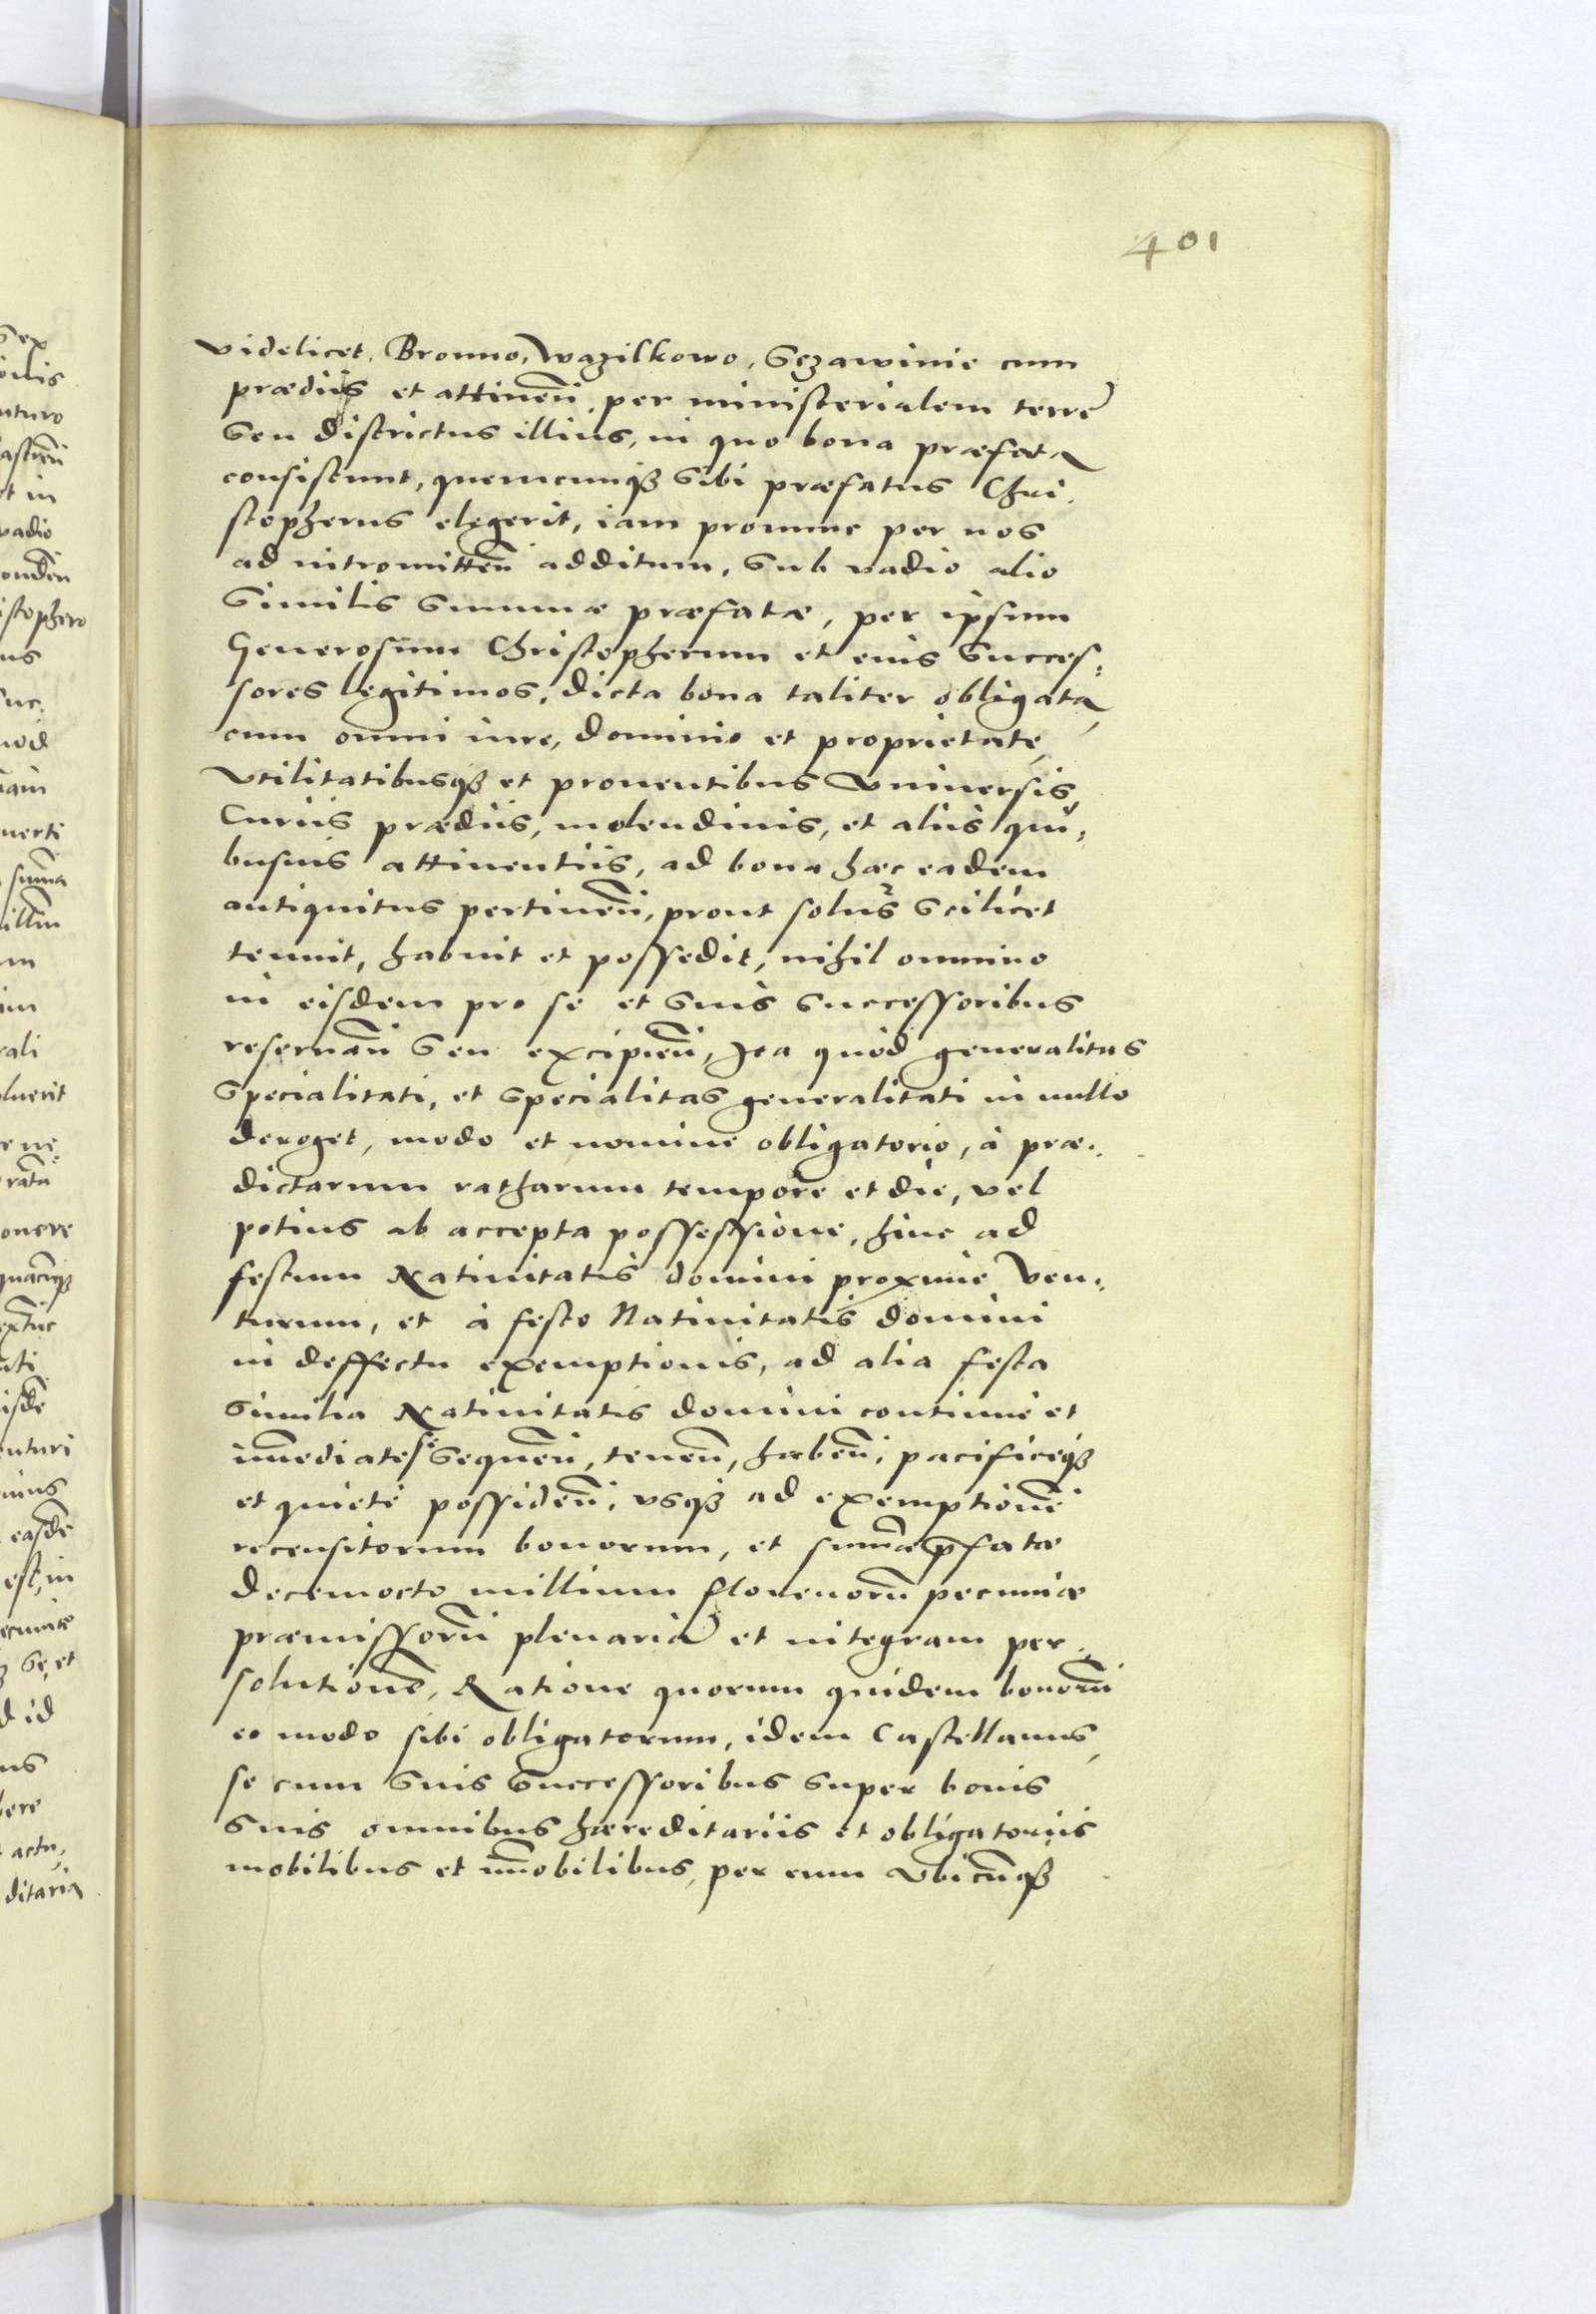 401
videlicet. Bronno, Wazilkowo, Sczawinie cum
prædiis et attinen̄, per ministerialem terre
seu districtus illius, in quo bona præfata
consistunt, quemcunqꝫ sibi præfatus Chri.
stopherus elegerit, iam pronunc per nos
ad intromitten̄ additum, sub vadio alio
similis summæ præfatæ, per ipsum
Generosum Christopherum et eius succes:
sores legitimos, dicta bona taliter obligata,
cum omni iure, dominio et proprietate,
vtilitatibusqꝫ et prouentibus vniuersis,
Curiis prædiis, molendinis, et aliis qui:
busuis attinentiis, ad bona hæc eadem
antiquitus pertinen̄, prout solus scilicet
tenuit, habuit et possedit, nihil omnino
in eisdem pro se et suis successoribus
reseruan̄ seu excipien̄, Ita quod generalitas
specialitati, et specialitas generalitati in nullo
deroget, modo et nomine obligatorio, à præ:
dictarum ratharum tempore et die, vel
potius ab accepta possessione, hinc ad
festum Natiuitatis domini proxime ven:
turum, et à festo Natiuitatis domini
in deffectu exemptionis, ad alia festa
similia Natiuitatis domini continue et
im̄ediate se sequen̄, tenen̄, haben̄, pacificeqꝫ
et quiete possiden̄, vsqꝫ ad exemptionē
recensitorum bonorum, et sum̄æ p̄fatæ
decemocto millium florenorū pecuniæ
præmissorū plenariā et integram per:
solutionē, Ratione quorum quidem bonorū
eo modo sibi obligatorum, idem Castellanus,
se cum suis successoribus super bonis
suis omnibus hæreditariis et obligatoriis
mobilibus et im̄obilibus, per eum vbicūqꝫ